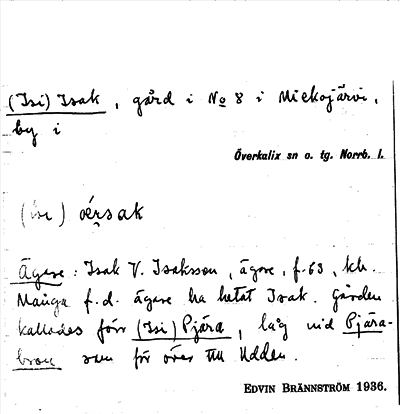 (Isi) Isak, gård i No 8 i Mickojärvi,
by i
Överkalix sn o. tg. Norrb. l.
Ägare: Isak V. Isaksson, ägare, f. 63, kh.
Många f.d. ägare ha hetat Isak. Gården
kallades förr (Isi) Pjära, låg vid Pjära-
bron som för över till Udden.
EDVIN BRÄNNSTRÖM 1936.